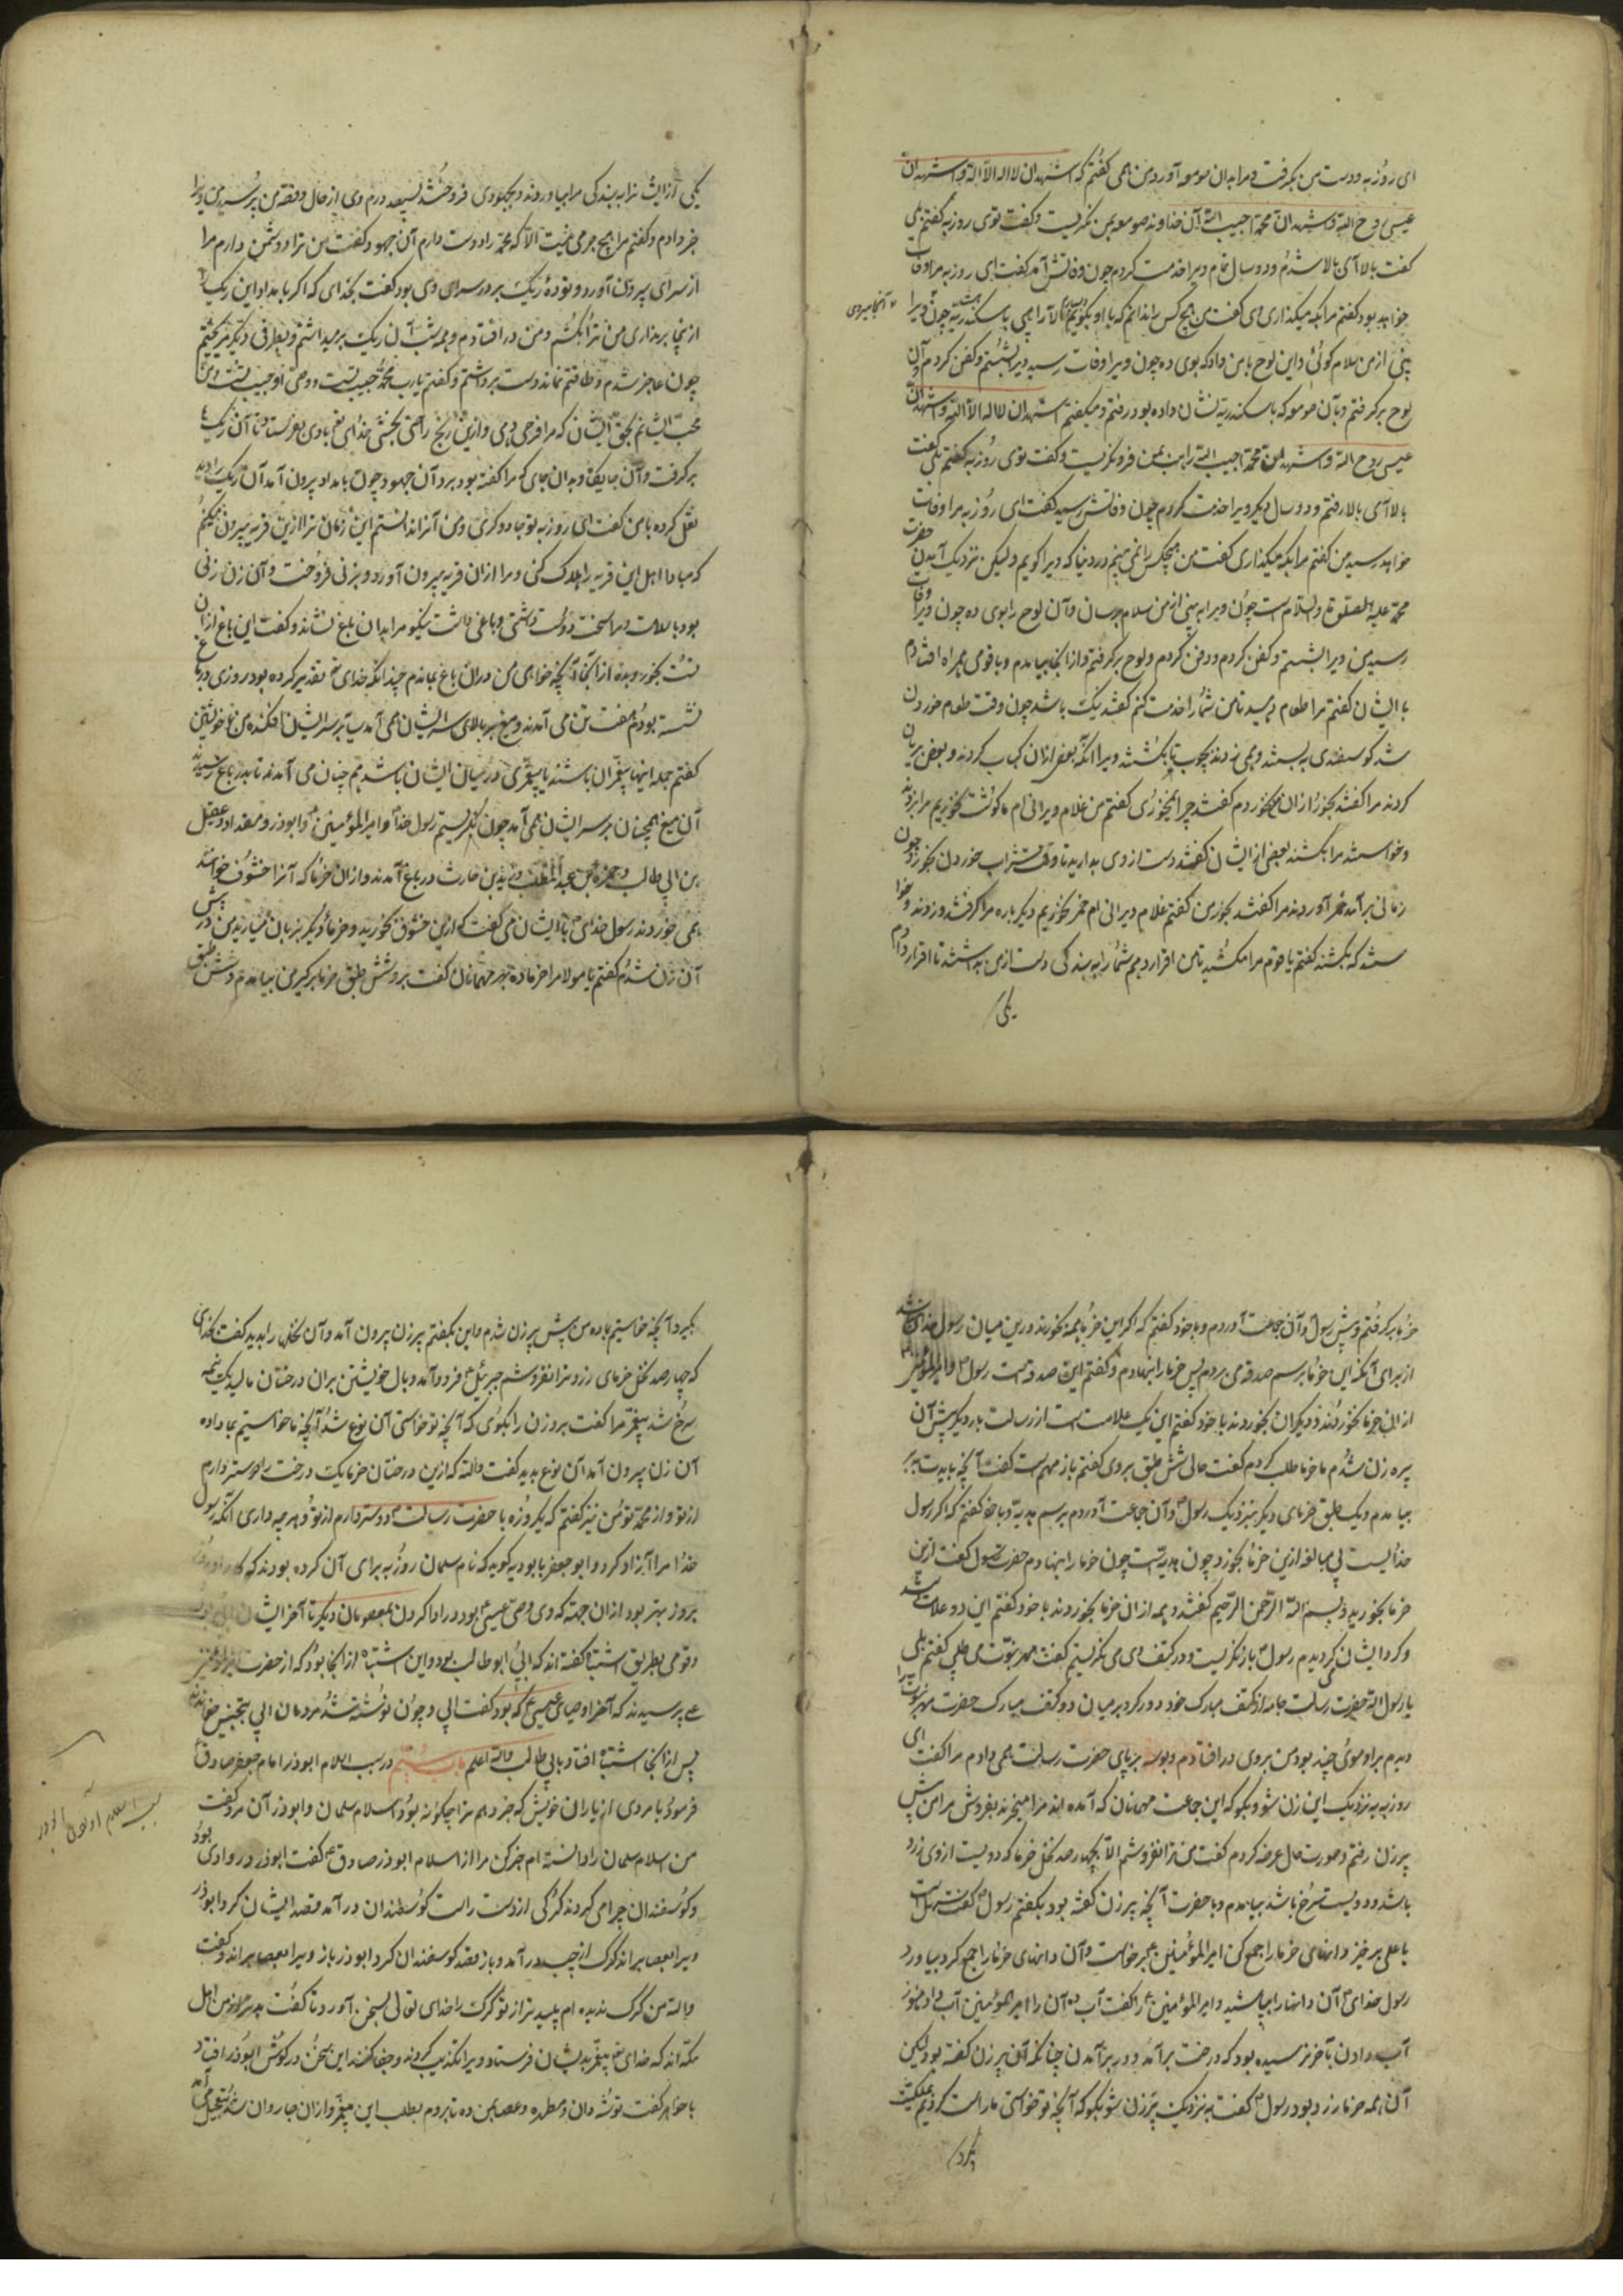 ای روزبه و دست من بگرفت و مرا بدان صومعه آورد من همی گفتم که اشهد ان لا اله الا الله و اشهد ان
عیسی روح الله و اشهد ان محمدا حبیب الله آن خداوند صومعه بمن نگریست و گفت توی روزبه گفتم بلی
گفت بالا آی بالا شدم و دو سال تمام ویرا خدمت کردم چون وفاتش آمد گفت ای روزبه مرا وفات
خواهد بود گفتم مرا بکه میگذاری وی گفت من هیچ کس را ندانم که با او بگویم الا راهبی باسکندریه چون ویرا
آنجا میروی
بینی از من سلام گوئی و این لوح بامن داد که بوی ده چون ویرا وفات رسید ویرا بشستم و کفن کردم و آن
لوح برگرفتم و بآن صومعه که باسکندریه نشان داده بود رفتم و میگفتم اشهد ان لا اله الا الله و اشهد ان
عیسی روح الله و اشهد ان محمدا حبیب الله راهب بمن فرو نگریست و گفت توی روزبه گفتم بلی گفت
بالا آی بالا رفتم و دو سال دیگر ویرا خدمت کردم چون وفاتش رسید گفت ای روزبه مرا وفات
خواهد رسید من گفتم مرا بکه میگذاری گفت من هیچکس را نمی بینم در دنیا که ویرا گویم ولیکن نزدیک آمدن حضرت
محمد علیه الصلوة و السلام است چون ویرا به بینی از من سلام برسان و آن لوح را بوی ده چون ویرا وفات
رسید من ویرا بشستم و کفن کردم و دفن کردم و لوح برگرفتم و از آنجا بیامدم و با قومی همراه افتادم
با ایشان گفتم مرا طعام دهید تا من شما را خدمت کنم گفتند نیک باشد چون وقت طعام خوردن
شد گوسفندی به بستند و همی زدند بچوب تا بکشتند ویرا آنگه بعضی ازان کباب کردند و بعضی بریان
کردند مرا گفتند بخور ازان نخوردم گفتند چرا نمی خوری گفتم من غلام دیرانی ام ما گوشت نخوریم مرا بزدند
و خواستند مرا بکشند بعضی از ایشان گفتند دست از وی بدارید تا وقت شراب خوردن بخورد چون
زمانی برآمد خمر آوردند مرا گفتند بخور من گفتم غلام دیرانی ام خمر نخوریم دیگر باره مرا گرفتند و زدند و خوا
ستند که بکشند گفتم یا قوم مرا مکشید تا من اقرار دهم شما را به بندگی دست از من بداشتند تا اقرار دادم
یکی
یکی از ایشان مرا به بندگی مرا بیاوردند و بجهودی فروختند بسیصد درم وی از حال و قصه من پرسید من ویرا
خبر دادم و گفتم مرا هیچ جرمی نیست الا که محمد را دوست دارم آن جهود گفت من ترا و او دشمن دارم مرا
از سرای بیرون آورد و تودهٔ ریگ بر در سرای وی بود گفت بخدای که اگر بامداد این ریگ
ازینجا برنداری من ترا بکشم و من در افتادم و همه شب آن ریگ برمیداشتم و بطرفی دیگر میریختم
چون عاجز شدم و طاقتم نماند دست برداشتم و گفتم یارب محمد حبیب تست و وصی او حبیب تست و من
محب ایشانم بحق ایشان که مرا فرجی دهی و ازین رنج راحتی بخشی خدای تعالی بادی بفرستاد تا آن ریگ
برگرفت و آن جایگاه و بدان جای که مرا گفته بود برد آن جهود چون بامداد بیرون آمد آن ریگ را دید
نقل کرده بامن گفت ای روزبه تو جادوگری و من آنرا ندانستم این زمان ترا ازین قریه بیرون میکنم
که مبادا اهل این قریه را هلاک کنی و مرا ازان قریه بیرون آورد و بزنی فروخت و آن زن زنی
بود باسلامت و مرا سخت دوست داشتی و باغی داشت نیکو مرا بدان باغ نشاند و گفت این باغ ازان
تست بخور و بده از آنجا آنچه خواهی من دران باغ بماندم چندانکه خدای تعالی تقدیر کرده بود روزی در باغ
نشسته بودم هفت تن می آمدند و میغ بر بالای سر ایشان همی آمد سایه بر سر ایشان افکنده من با خویشتن
گفتم جمله اینها پیغمبران باشند یا پیغمبری در میان ایشان باشد هم چنان می آمدند تا بدر باغ رسیدند
آن میغ همچنان بر سر ایشان همی آمد چون نگریستم رسول خدا و امیر المؤمنین و ابوذر و مقداد و عقیل
بن ابی طالب و حمزة بن عبد المطلب و زید بن حارث در باغ آمدند و ازان خرما که آنرا حشوف خوانند
همی خوردند رسول خدای با ایشان می گفت که ازین حشوف بخورید و خرما دیگر بزیان میارید من در پیش
آن زن شدم گفتم یا مولا مرا خرما ده بهر مهمانان گفت برو شش طبق خرما برگیر من بیامدم و شش طبق
خرما برگرفتم و پیش رسول و آن جماعت آوردم و با خود گفتم که اگر این خرما همه بخورند درین میان رسول خدای نباشد
از برای آنکه این خرما برسم صدقه می بردم پس خرما را بنهادم و گفتم این صدقه است رسول و امیر المؤمنین
ازان خرما نخوردند و دیگران بخوردند با خود گفتم این یک علامت است از رسالت بار دیگر پیش آن
پیره زن شدم تا خرما طلب کردم گفت حالی شش طبق بردی گفتم باز مهم است گفت آنچه بایدت ببر
بیامدم و یک طبق خرمای دیگر بنزدیک رسول و آن جماعت آوردم برسم هدیه و با خود گفتم که اگر رسول
خدا لیست بی مبالغه ازین خرما بخورد چون هدیه است چون خرما را بنهادم حضرت رسول گفت ازین
خرما بخورید و بسم الله الرحمن الرحیم گفتند و همه ازان خرما بخوردند با خود گفتم این دو علامت شد
و گرد ایشان می گردیدم رسول باز نگریست و در کتف وی می نگریستم گفت مهر نبوت می طلبی گفتم بلی
یا رسول الله حضرت رسالت جامه از کتف مبارک خود دور کرد بر میان دو کتف مبارک حضرت مهر نبوت را
دیدم بر او موئی چند بود من بروی در افتادم و بوسه بر پای حضرت رسالت همی دادم مرا گفت ای
روزبه به نزدیک این زن شو و بگو که این جماعت مهمانان که آمده اند مرا میخرند بفروش مرا من پیش
پیرزن رفتم و صورت حال عرضه کردم گفت من ترا نفروشم الا بچهار صد نخل خرما که دویست از وی زرد
باشد و دویست سرخ باشد بیامدم و با حضرت آنچه پیرزن گفته بود بگفتم رسول گفت سهل است
یا علی برخیز و دانهای خرما را جمع کن امیر المؤمنین برخاست و آن دانهای خرما را جمع کرد بیاورد
رسول خدای آن دانها را بپاشید و امیر المؤمنین را گفت آب ده آن را امیر المؤمنین آب داد هنوز
آب دادن بآخر نرسیده بود که درخت برآمد و در برآمدن چنانکه آن پیرزن گفته بود لیکن
آن همه خرما زرد بود رسول گفت به نزدیک پیرزن شو بگو که آنچه تو خواستی ما راست کردیم
بگیرد
بگیر و آنچه خواستیم باده من پیش پیرزن شدم و این بگفتم پیرزن بیرون آمد و آن نخل را بدید گفت بخدای
که چهار صد نخل خرمای زرد ترا نفروشم جبرئیل فرود آمد و بال خویشتن بران درختان مالید یک نیمه
سرخ شد پیغمبر مرا گفت برو زن را بگوی که آنچه تو خواستی آن نوع شد آنچه ما خواستیم بما ده
آن زن بیرون آمد آن نوع بدید گفت والله که ازین درختان خرما یک درخت را دوستر دارم
از تو و از محمد تو من نیز گفتم که یکروزه با حضرت رسالت دوستر دارم از تو و هر چه داری آنگه رسول
خدا مرا آزاد کرد و ابو جعفر بابویه گوید که نام سلمان روزبه برای آن کرده بودند که
بروز بهتر بود ازان جهته که وی وصی عیسی بود در ادا کردن بمعصومان دیگر تا آخر ایشان
و قومی بطریق اشتباه گفته اند که ابی ابو طالب بود و این اشتباه از آنجا بود که از حضرت
پرسیدند که آخر اوصیای عیسی که بود گفت ابی و چون نوشته شد مردمان ابی بتجنیس خواندند
پس از آنجا اشتباه افتاد بابی طالب والله اعلم باب بیستم در سبب اسلام ابوذر امام جعفر صادق
سبب اسلام آوردن ابوذر
فرمود با مردی از یاران خویش که خبر دهم ترا چگونه بود اسلام سلمان و ابوذر آن مرد گفت
من اسلام سلمان را دانسته ام خبر کن مرا از اسلام ابوذر صادق گفت ابوذر در وادی بود
و گوسفندان چرا می کردند گرگی از دست راست گوسفندان در آمد قصد ایشان کرد ابوذر
ویرا بعصا براند گرگ از چپ در آمد و باز قصد گوسفندان کرد ابوذر باز ویرا بعصا براند و گفت
والله من گرگ ندیده ام پلیدتر از تو گرگ را خدای تعالی بسخن آورد تا گفت بدتر از من اهل
مکه اند که خدای تعالی پیغمبر بدیشان فرستاد و ویرا تکذیب کردند و جفا گفتند این سخن در گوش ابوذر افتاد
با خواهر گفت توشه دان و مطهره و عصا بمن ده تا بروم بطلب این پیغمبر و ازان جا روان شد بتعجیل می آمد